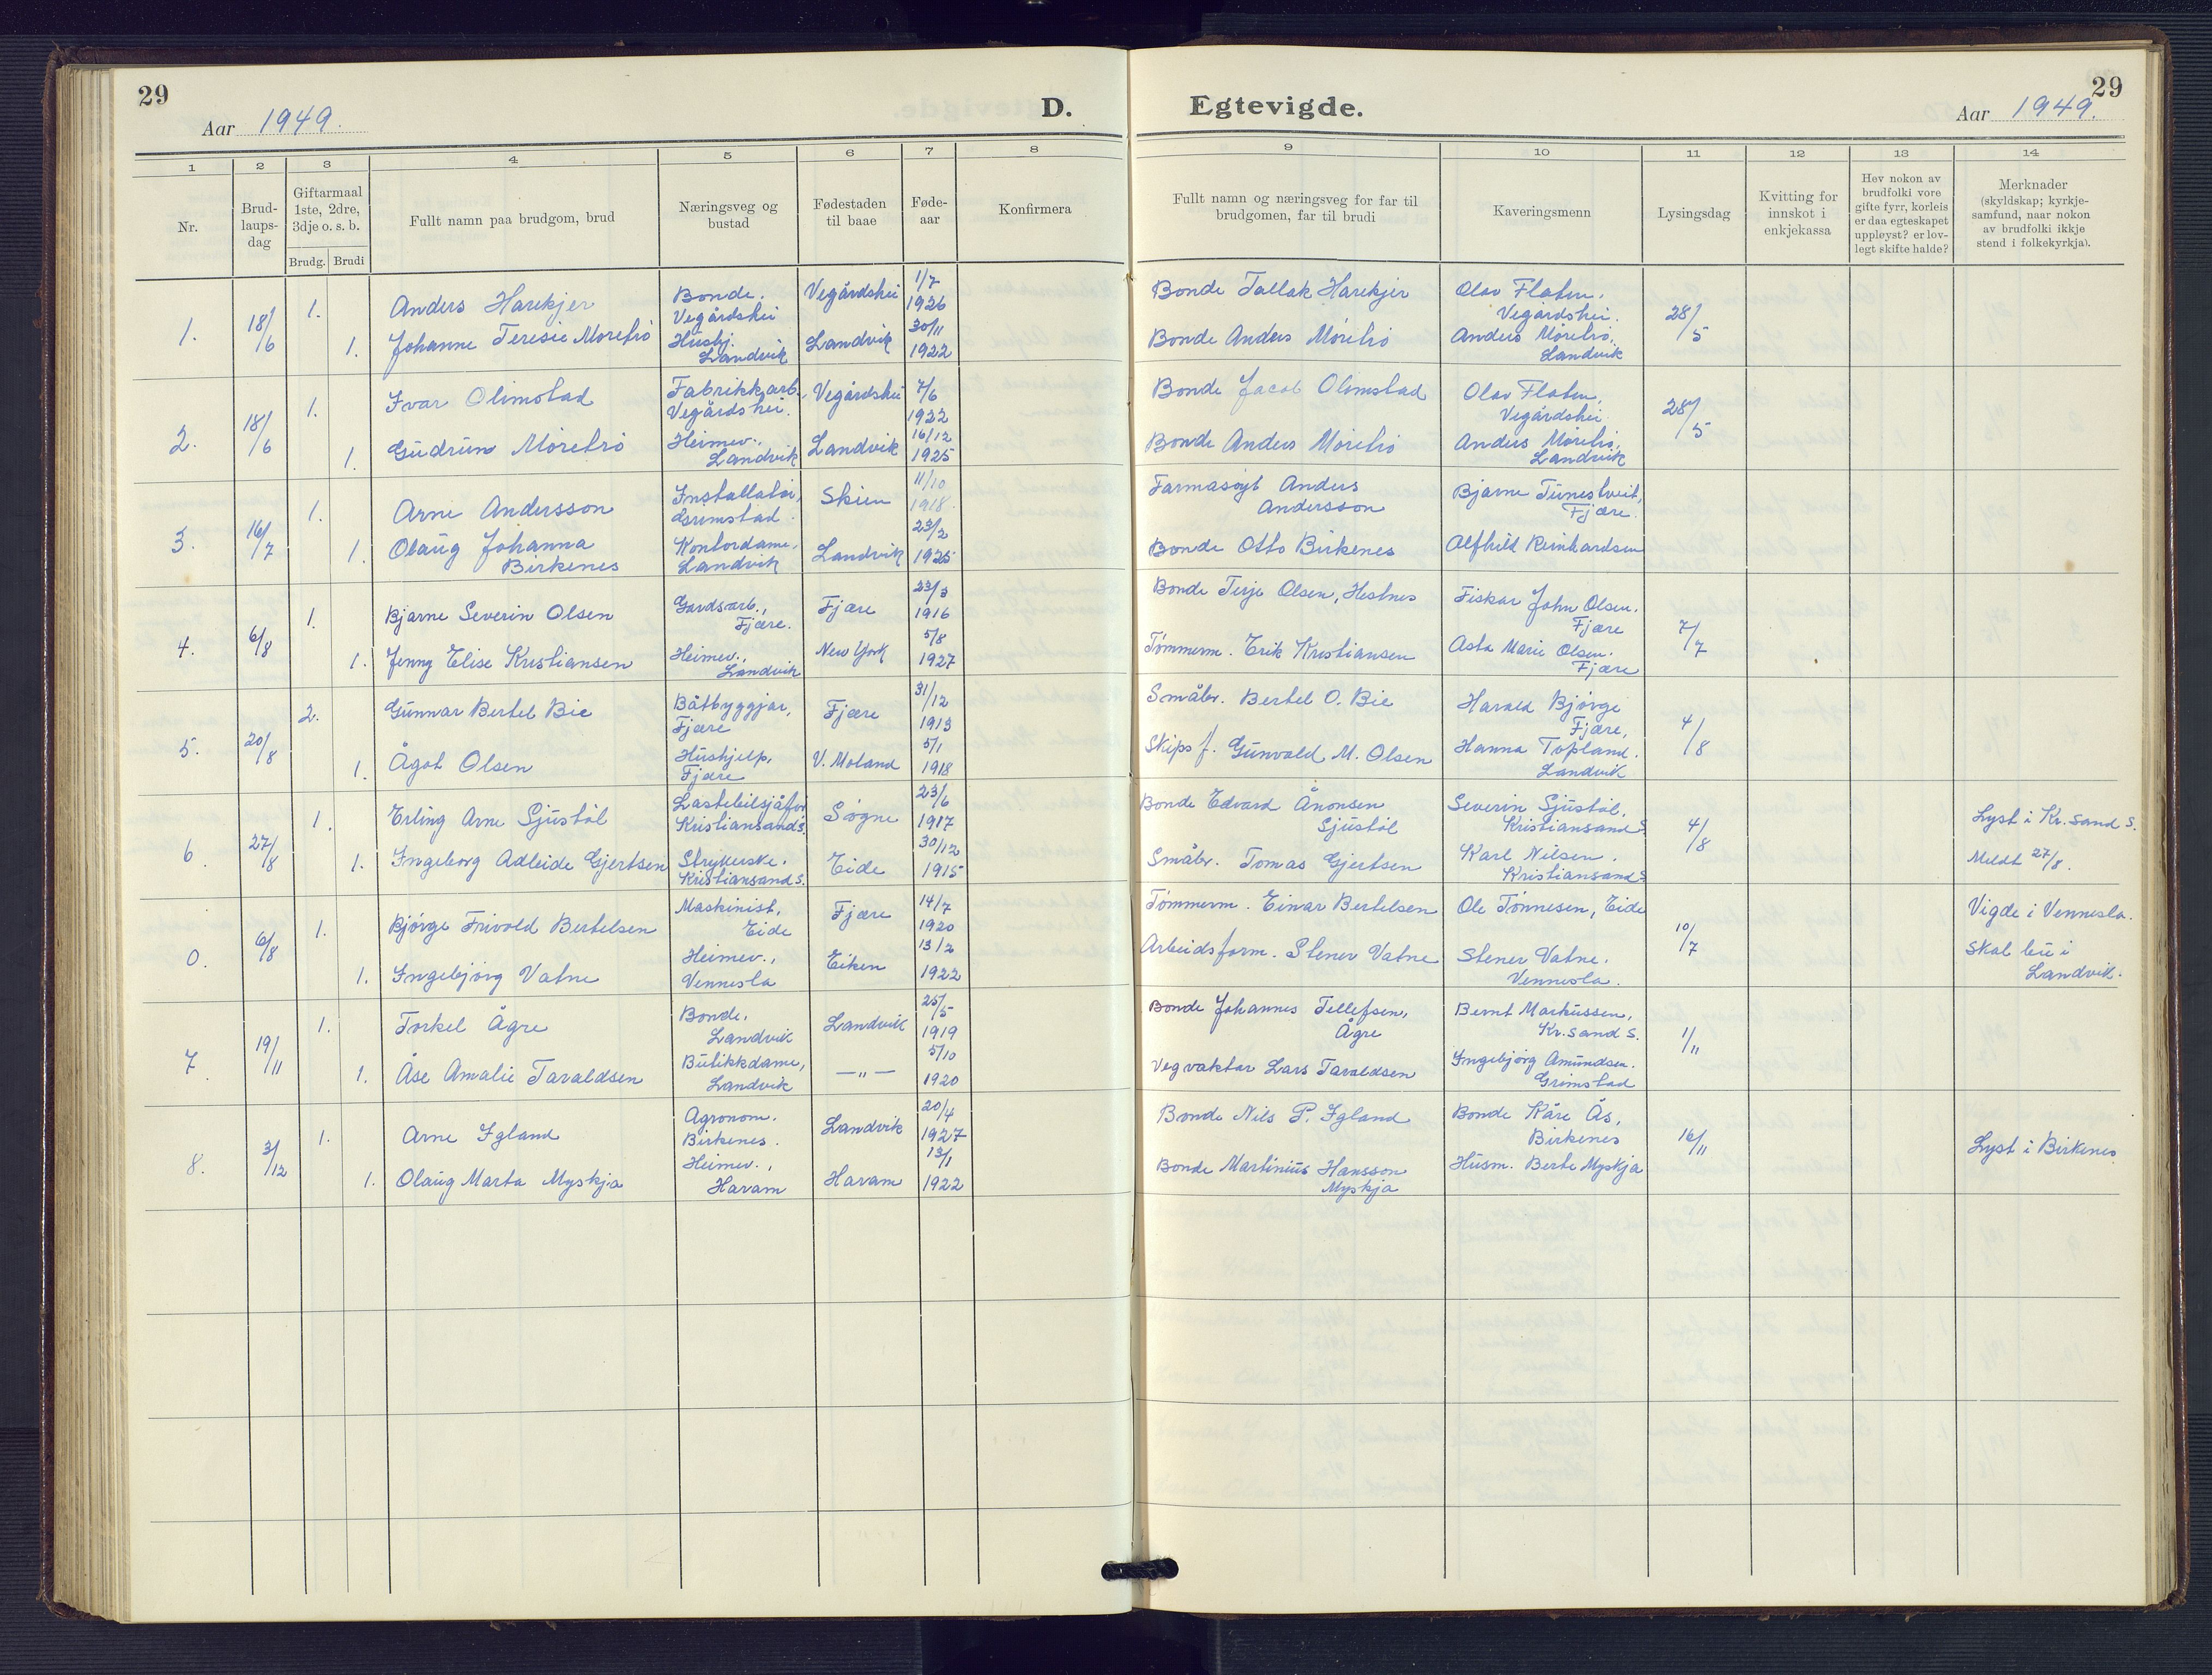 29
Aar 1949.
D.
Egtevigde.
29
Aar 1949.
1 2 3 4 5 6 7 8 9 10 11 12 13 14
Nr.
Brud-
laups-
dag
Giftarmaal
1ste, 2dre,
3dje o. s. b.
Brudg. Brudi
Fullt namn paa brudgom, brud
Næringsveg og
bustad
Fødestaden
til baae
Føde-
aar
Konfirmera
Fullt namn og næringsveg for far til
brudgomen, far til brudi
Kaveringsmenn
Lysingsdag
Kvitting for
innskot i
enkjekassa
Hev nokon av
brudfolki vore
gifte fyrr, korleis
er daa egteskapet
uppløyst? er lov-
legt skifte halde?
Merknader
(skyldskap; kyrkje-
samfund, naar nokon
av brudfolki ikkje
stend i folkekyrkja).
1. 18/6
1. Anders Harekjer Bonde, Vegårdshei Vegårdshei 1/7 1926 Bonde Tallak Harekjer Olav Flaten, Vegårdshei. 28/5
1. Johanne Teresie Moretrö Hushj. Landvik Landvik 30/11 1922 Bonde Anders Möretrö Anders Möretrö, Landvik
2. 18/6
1. Ivar Olimstad Fabrikkarb., Vegårdshei. Vegårdshei 7/6 1922 Bonde Jacob Olimstad Olav Flaten, Vegårdshei 28/5
1. Gudrun Möretrö Heimev., Landvik Landvik 16/12 1925 Bonde Anders Möretrö Anders Möretrö, Landvik
3. 16/7
1. Arne Andersson Installatör, Grimstad. Skien 11/10 1918. Farmasøyt Anders Andersson Bjarne Tunestveit, Fjære.
1. Olaug Johanna Birkenes Kontordame, Landvik Landvik 23/2 1925 Bonde Otto Birkenes Alfhild Reinhardsen
4. 6/8
1. Bjarne Severin Olsen Gardsarb., Fjære. Fjære 23/3 1916 Bonde Terje Olsen, Hestnes Fiskar John Olsen, Fjære 7/7
1. Jenny Elise Kristiansen Heimev., Landvik New York 5/8 1927 Tömmerm. Erik Kristiansen Asta Marie Olsen. Fjære
5. 20/8
2. Gunnar Bertel Bie Båtbyggjar, Fjære Fjære 31/12 1913 Småbr. Bertel O. Bie Harald Bjørge Fjære, 4/8
1. Ågot Olsen Hushjelp, Fjære V. Moland 5/1 1918 Skipsf. Gunvald M. Olsen Hanna Topland. Landvik
6. 27/8
1. Erling Arne Sjustöl Lastebilsjåför Kristiansand S. Søgne 23/6 1917 Bonde Edvard Ånonsen Sjustöl Severin Sjustöl, Kristiansand S. 4/8 Lyst i Kr.sand S.
1. Ingeborg Adleide Gjertsen Strykerske. Kristiansand S. Eide 30/12 1915 Småbr. Tomas Gjertsen Karl Nilsen. Kristiansand S. Meldt 27/8.
0. 6/8
1. Bjørge Frivold Bertelsen Maskinist, Eide Fjære 14/7 1920 Tömmerm. Einar Bertelsen Ole Tönnesen, Eide 10/7 Vigde i Vennesla.
1. Ingebjörg Vatne Heimev., Vennesla Eiken 13/2 1922 Arbeidsform. Stener Vatne Stener Vatne. Vennesla. Skal bu i Landvik.
7. 19/11
1. Torkel Ågre Bonde, Landvik Landvik 25/5 1919 Bonde Johannes Tellefsen, Ågre Bernt Markussen, Kr.sand S. 1/11
1. Åse Amalie Taraldsen Butikkdame, Landvik —"— 5/10 1920 Vegvaktar Lars Taraldsen Ingebjörg Amundsen. Grimstad
8. 3/12
1. Arne Igland Agronom. Birkenes. Landvik 20/4 1927 Bonde Nils P. Igland Bonde Kåre Ås, Birkenes 16/11 Lyst i Birkenes
1. Olaug Marta Myskja Heimev., Haram Haram 13/1 1922 Bonde Martinius Hansson Myskja Husm. Berte Myskja